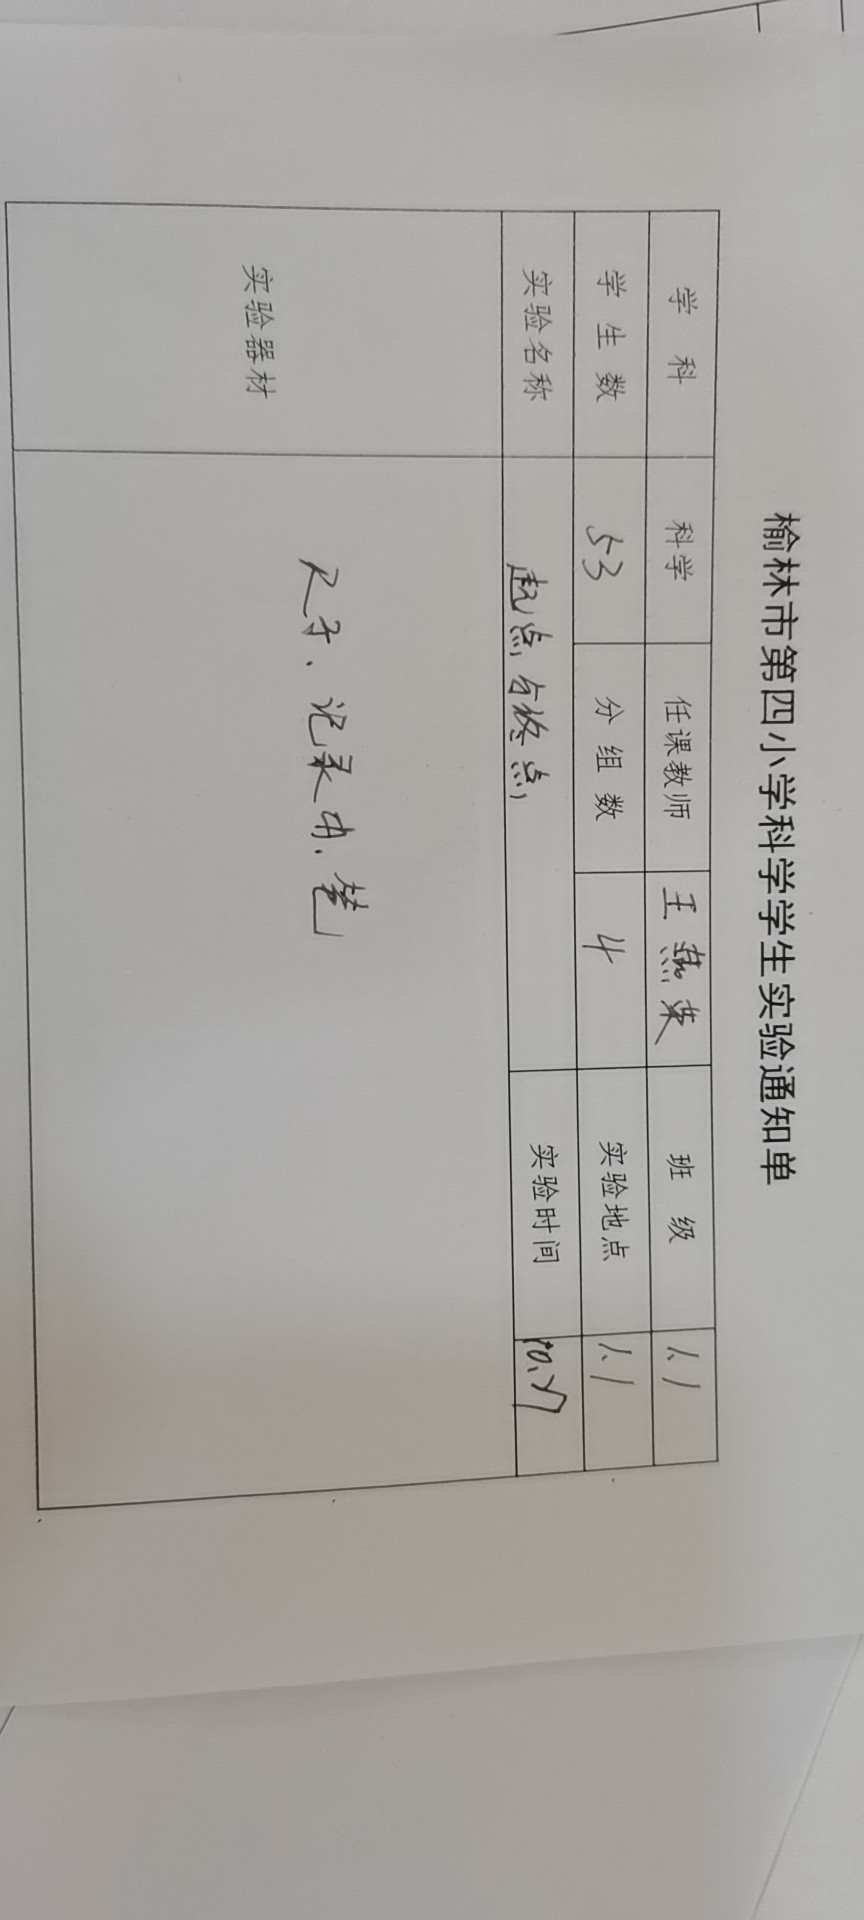 榆林市第四小学科学学生实验通知单
学 科 科学 任课教师 王燕 班 级 1.1
学生数 53 分组数 4 实验地点 1.1
实验名称 起点与终点 实验时间
实验器材 尺子、记录